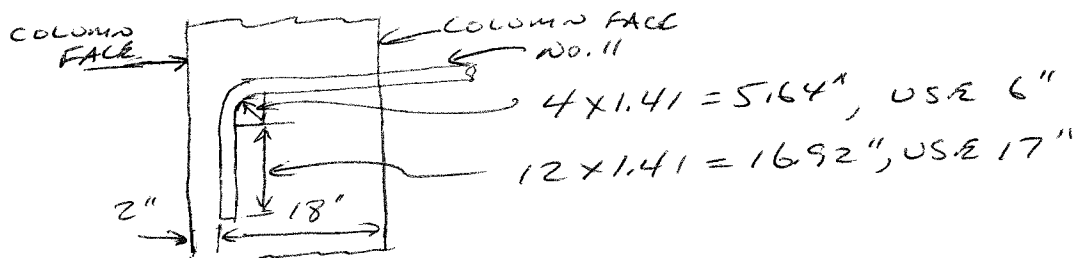 COLUMN
FACE
COLUMN FACE
NO. 11
4 X 1.41 = 5.64", USE 6"
12 X 1.41 = 16.92", USE 17"
2"
18"